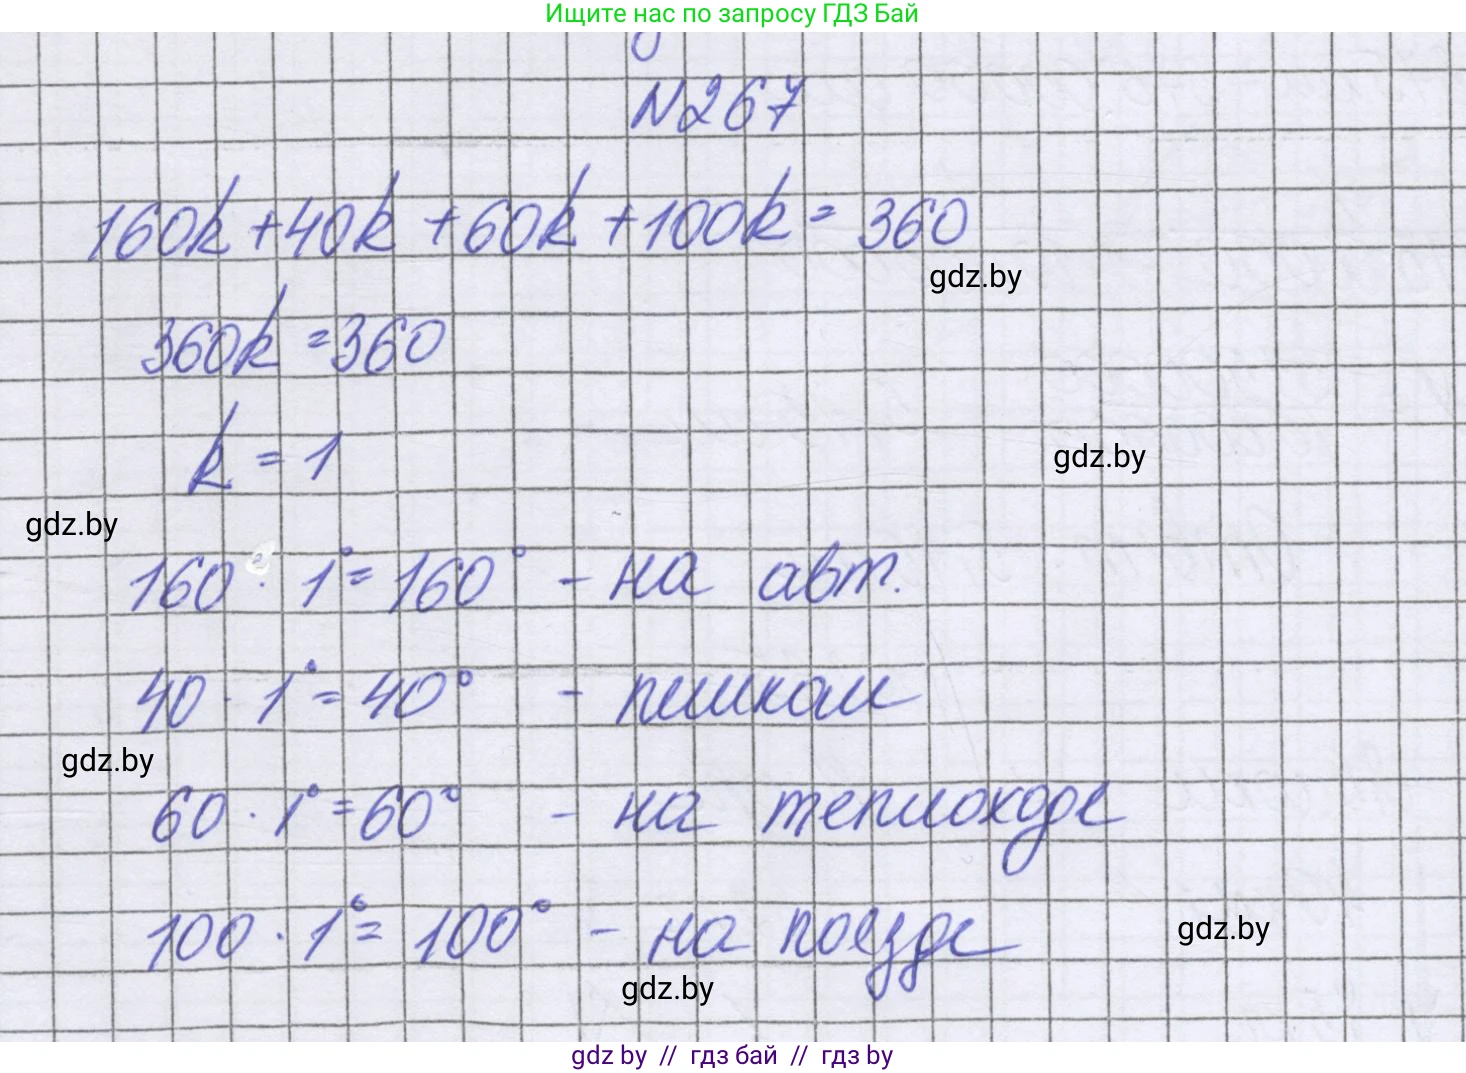 Ищите нас по запросу ГДЗ Бай
N267
160k+40k+60k+100k=360
gdz.by
360k=360
k=1
gdz.by
gdz.by
160·1°=160° - на авт.
40·1°=40° - пешком
gdz.by
60·1°=60° - на теплоходе
100·1°=100° - на поезде
gdz.by
gdz.by
gdz by // гдз бай // гдз by